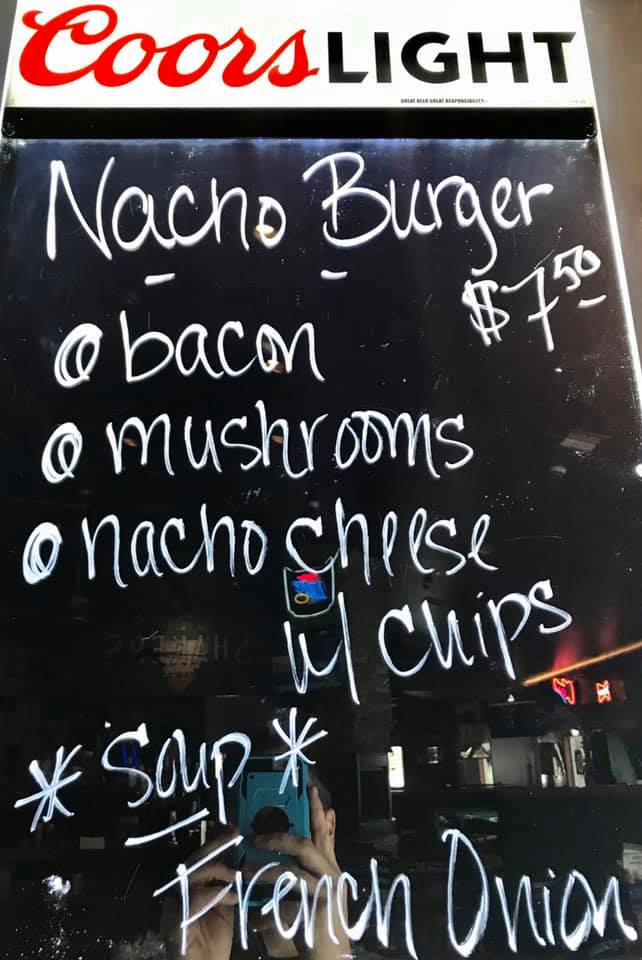 Coors LIGHT
GREAT BEER GREAT RESPONSIBILITY
Nacho Burger
$7.50
bacon
mushrooms
nacho cheese
w/ chips
* Soup *
French Onion